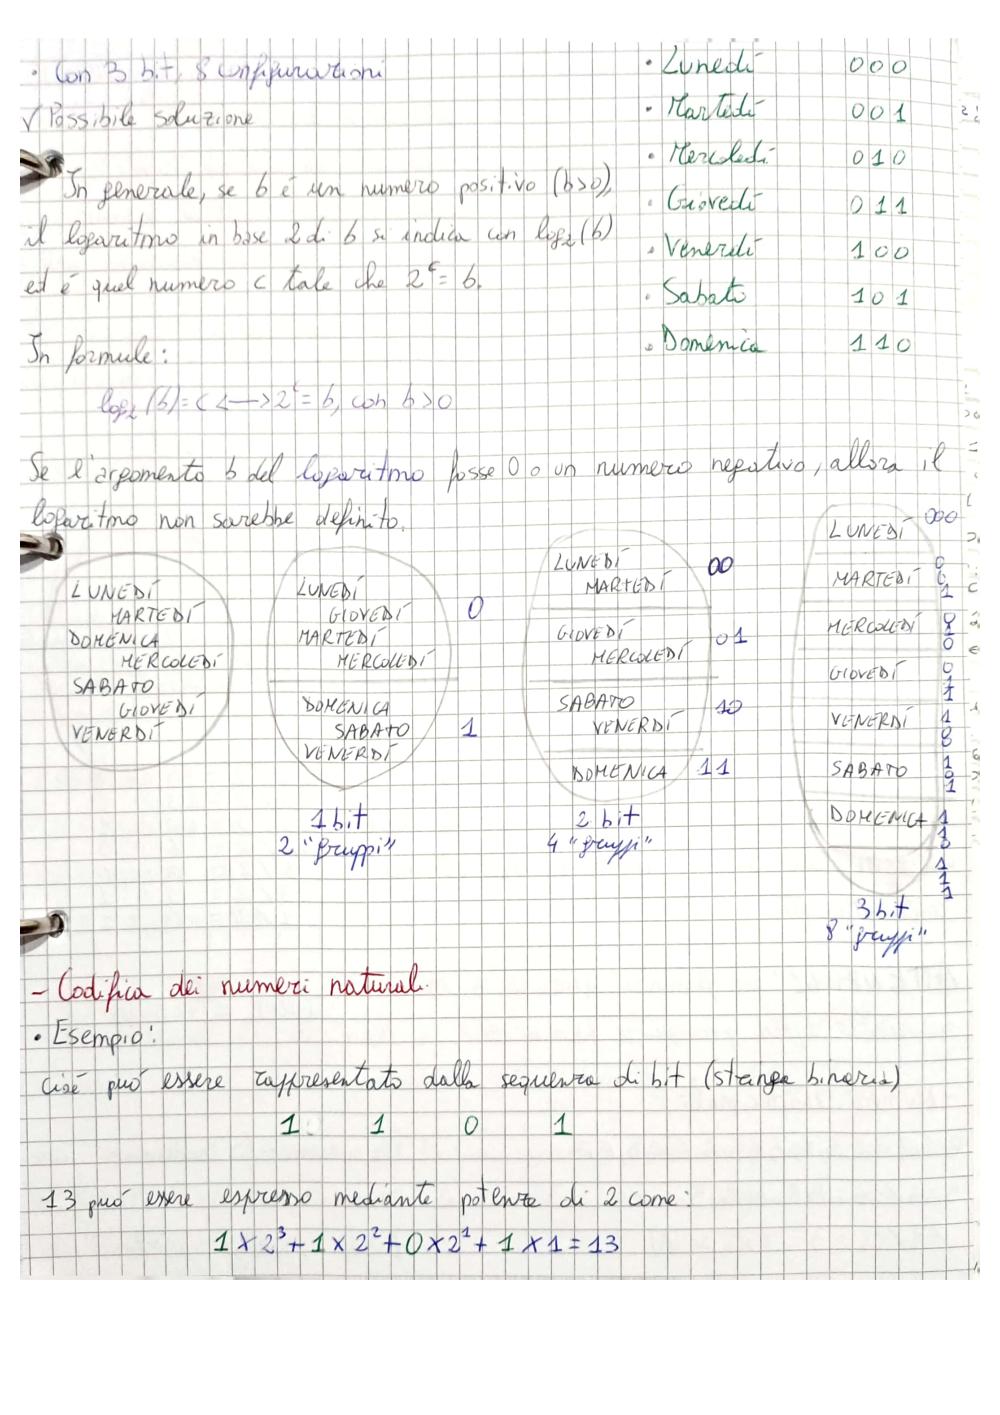 • Con 3 bit, 8 configurazioni
√ Possibile soluzione
• Lunedí 000
• Martedí 001
• Mercoledí 010
• Giovedí 011
• Venerdí 100
• Sabato 101
• Domenica 110
In generale, se b é un numero positivo (b>0),
il logaritmo in base 2 di b si indica con log₂(b)
ed é quel numero c tale che 2ᶜ = b.
In formule:
log₂(b)=c <—> 2ᶜ= b, con b>0
Se l'argomento b del logaritmo fosse 0 o un numero negativo, allora il
logaritmo non sarebbe definito.
LUNEDÍ
MARTEDÍ
DOMENICA
MERCOLEDÍ
SABATO
GIOVEDÍ
VENERDÍ
LUNEDÍ
GIOVEDÍ 0
MARTEDÍ
MERCOLEDÍ
DOMENICA
SABATO 1
VENERDÍ
1 bit
2 "gruppi"
LUNEDÍ 00
MARTEDÍ
GIOVEDÍ 01
MERCOLEDÍ
SABATO 10
VENERDÍ
DOMENICA 11
2 bit
4 "gruppi"
LUNEDÍ 000
MARTEDÍ 001
MERCOLEDÍ 010
GIOVEDÍ 011
VENERDÍ 100
SABATO 101
DOMENICA 110
111
3 bit
8 "gruppi"
– Codifica dei numeri naturali
• Esempio:
cioé puó essere rappresentato dalla sequenza di bit (stringa binaria)
1 1 0 1
13 puó essere espresso mediante potenze di 2 come:
1 × 2³ + 1 × 2² + 0 × 2¹ + 1 × 1 = 13